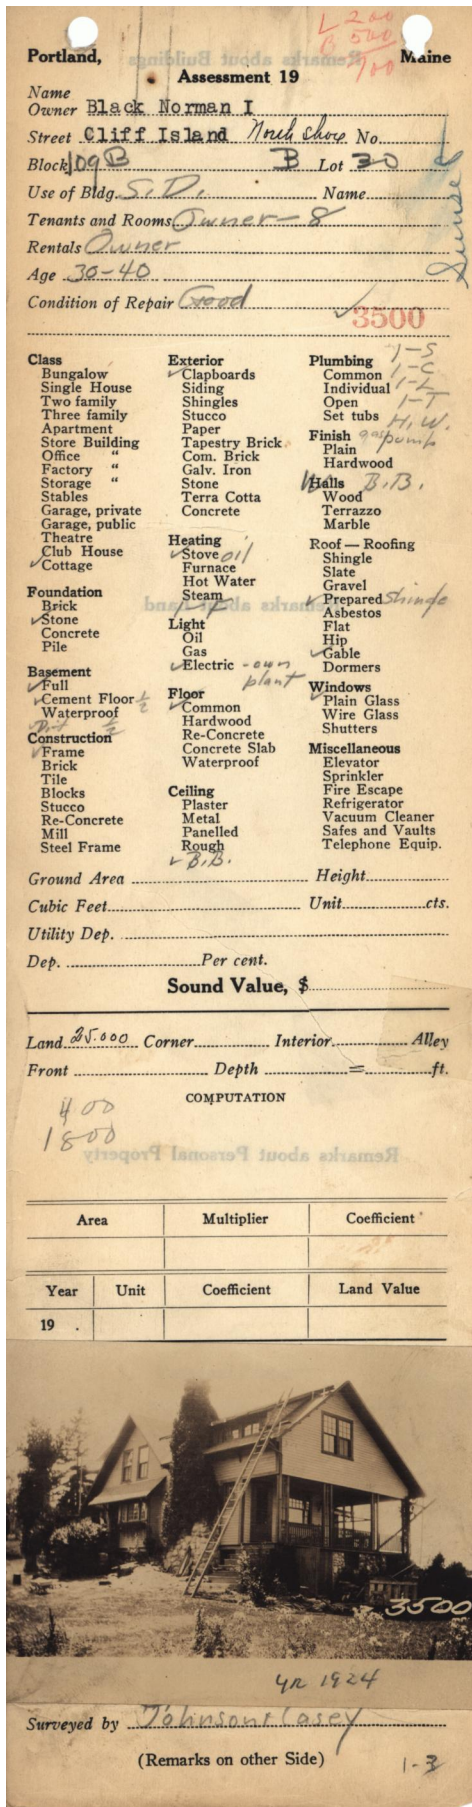 L 200
B 500
700
Portland, Maine
Assessment 19
Name
Owner Black Norman I
Street Cliff Island North Shore No.
Block 109B B Lot 30
Use of Bldg. S.D. Name
Tenants and Rooms Owner-8
Rentals Owner
Age 30-40
Condition of Repair Good
3500
Class
Bungalow
Single House
Two family
Three family
Apartment
Store Building
Office "
Factory "
Storage "
Stables
Garage, private
Garage, public
Theatre
Club House
✓Cottage
Foundation
Brick
✓Stone
Concrete
Pile
Basement
✓Full
✓Cement Floor ½
Waterproof
Dirt ½
Construction
✓Frame
Brick
Tile
Blocks
Stucco
Re-Concrete
Mill
Steel Frame
Exterior
✓Clapboards
Siding
Shingles
Stucco
Paper
Tapestry Brick
Com. Brick
Galv. Iron
Stone
Terra Cotta
Concrete
Heating
✓Stove oil
Furnace
Hot Water
Steam
1-f
Light
Oil
Gas
✓Electric - own
plant
Floor
✓Common
Hardwood
Re-Concrete
Concrete Slab
Waterproof
Ceiling
Plaster
Metal
Panelled
Rough
✓B.B.
Plumbing 1-S
Common 1-C
Individual 1-L
Open 1-T
Set tubs H.W.
Finish gas pump
Plain
Hardwood
Walls B.B.
Wood
Terrazzo
Marble
Roof—Roofing
Shingle
Slate
Gravel
✓Prepared shingle
Asbestos
Flat
Hip
✓Gable
Dormers
Windows
✓Plain Glass
Wire Glass
Shutters
Miscellaneous
Elevator
Sprinkler
Fire Escape
Refrigerator
Vacuum Cleaner
Safes and Vaults
Telephone Equip.
Ground Area Height
Cubic Feet Unit cts.
Utility Dep.
Dep. Per cent.
Sound Value, $
Land 25.000 Corner Interior Alley
Front Depth = ft.
COMPUTATION
400
1800
Area Multiplier Coefficient
Year Unit Coefficient Land Value
19
3500
yr 1924
Surveyed by Johnson & Casey
(Remarks on other Side)
1-3